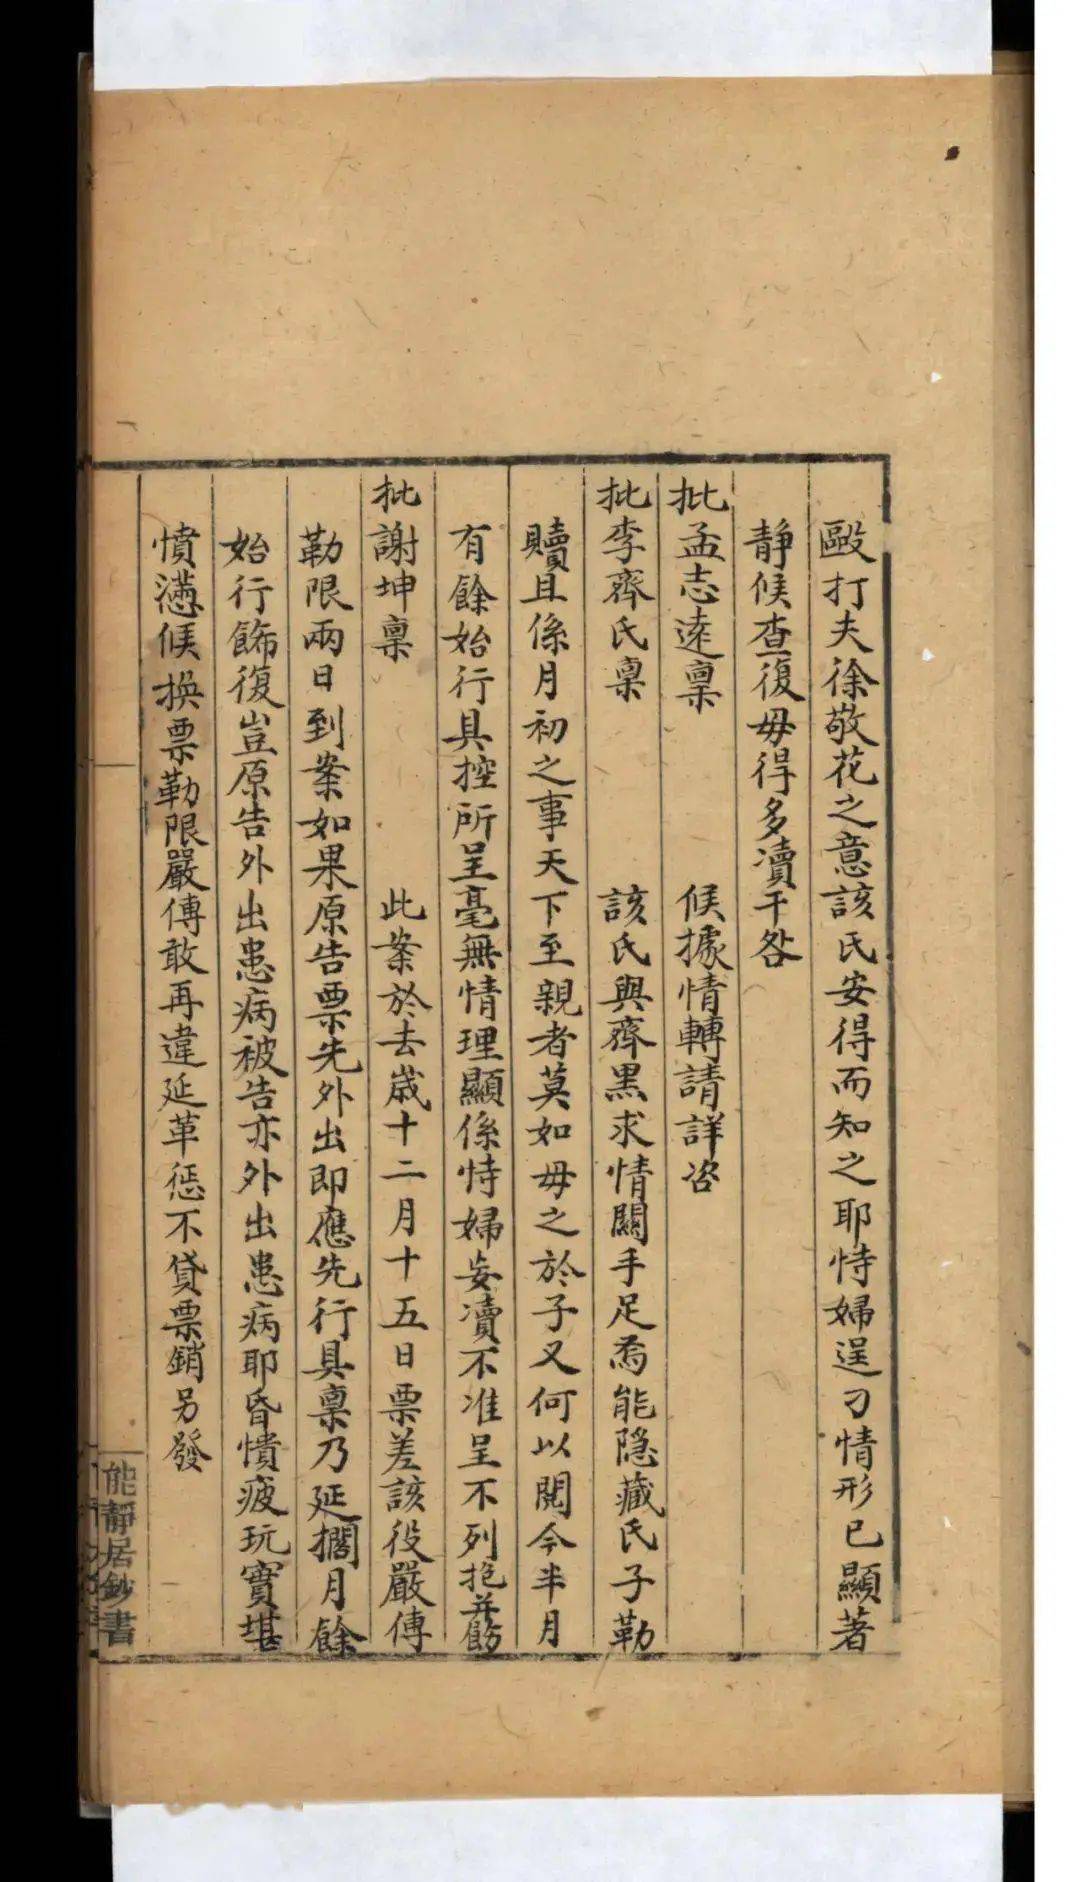 毆打夫徐敬花之意該氏安得而知之耶恃婦逞刁情形已顯著
靜候查復毋得多瀆干咎
批孟志逵稟　候據情轉請詳咨
批李齊氏稟　該氏與齊黑求情關手足焉能隐藏氏子勒
贖且係月初之事天下至親者莫如毋之於子又何以閱今半月
有餘始行具控所呈毫無情理顯係恃婦妄瀆不准呈不列抱并飭
批謝坤稟　此案於去歲十二月十五日票差該役嚴傳
勒限兩日到案如果原告票先外出即應先行具稟乃延擱月餘
始行飾復豈原告外出患病被告亦外出患病耶昏憒疲玩實堪
憤懣候換票勒限嚴傳敢再違延革惩不貸票銷另發
能靜居鈔書